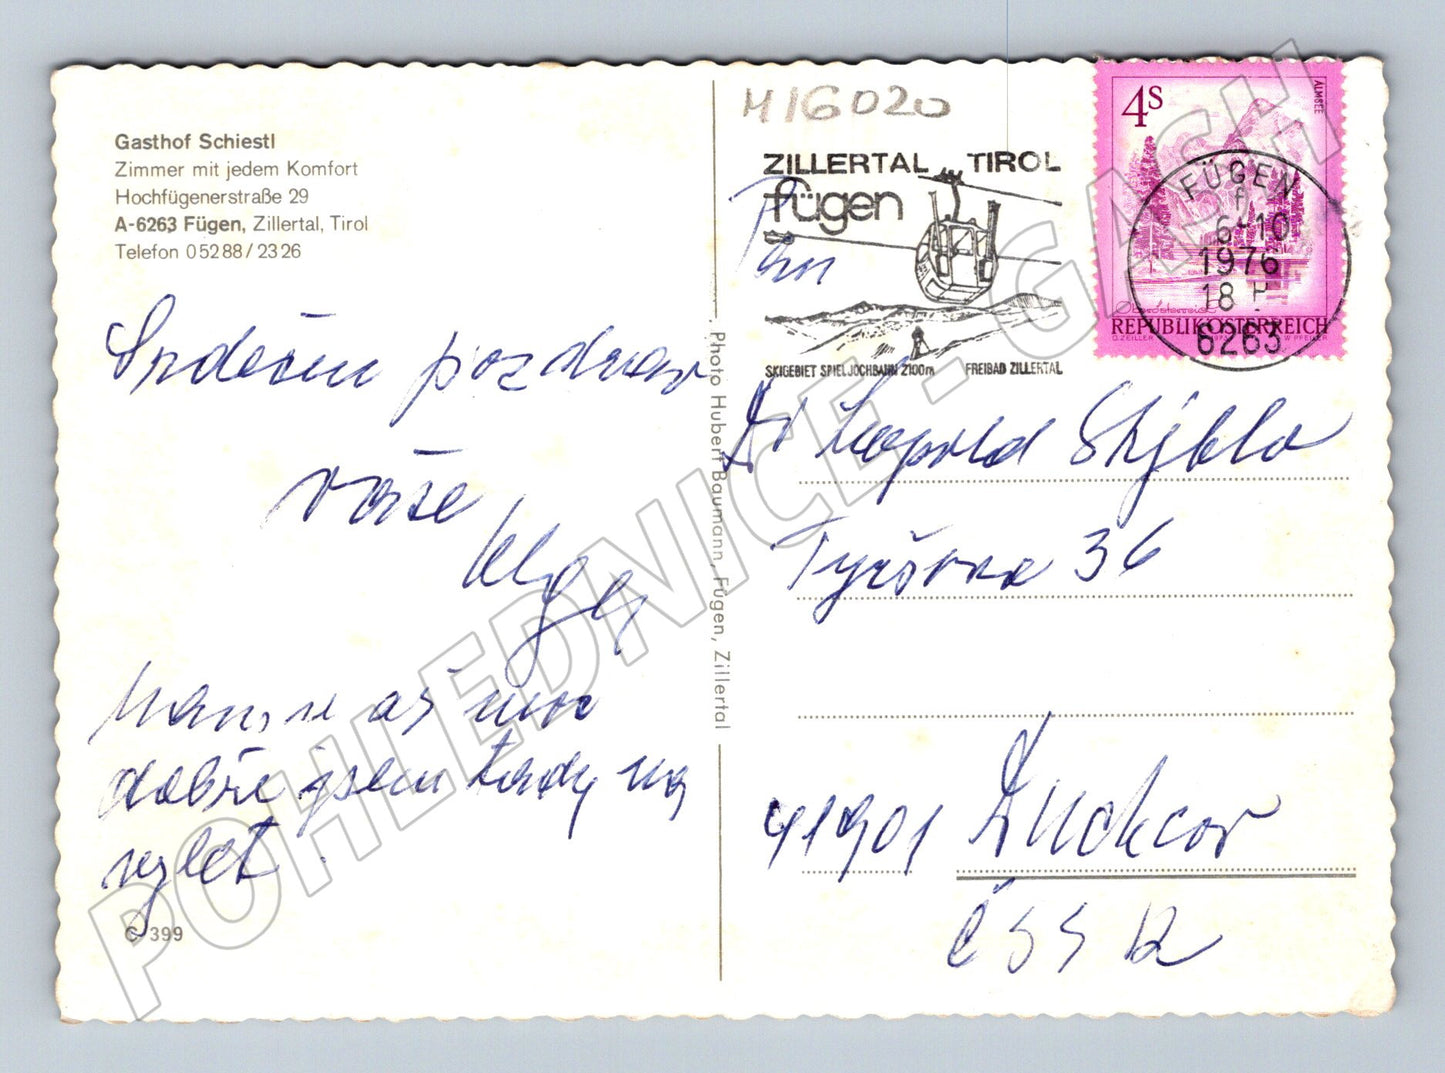 Gasthof Schiestl
Zimmer mit jedem Komfort
Hochfügenerstraße 29
A-6263 Fügen, Zillertal, Tirol
Telefon 05288/2326
Srdečný pozdrav
vaše
dobře jsem tady na
výlet.
C 399
Photo Hubert Baumann, Fügen, Zillertal
H16020
ZILLERTAL TIROL
fügen
SKIGEBIET SPIELJOCHBAHN 2100m FREIBAD ZILLERTAL
4S
ALMSEE
REPUBLIK ÖSTERREICH
FÜGEN
f
6-10
1976
18
6263
Pan
Dr Leopold
Tyršova 36
41901 Duchcov
ČSSR
POHLEDNICE - GASH